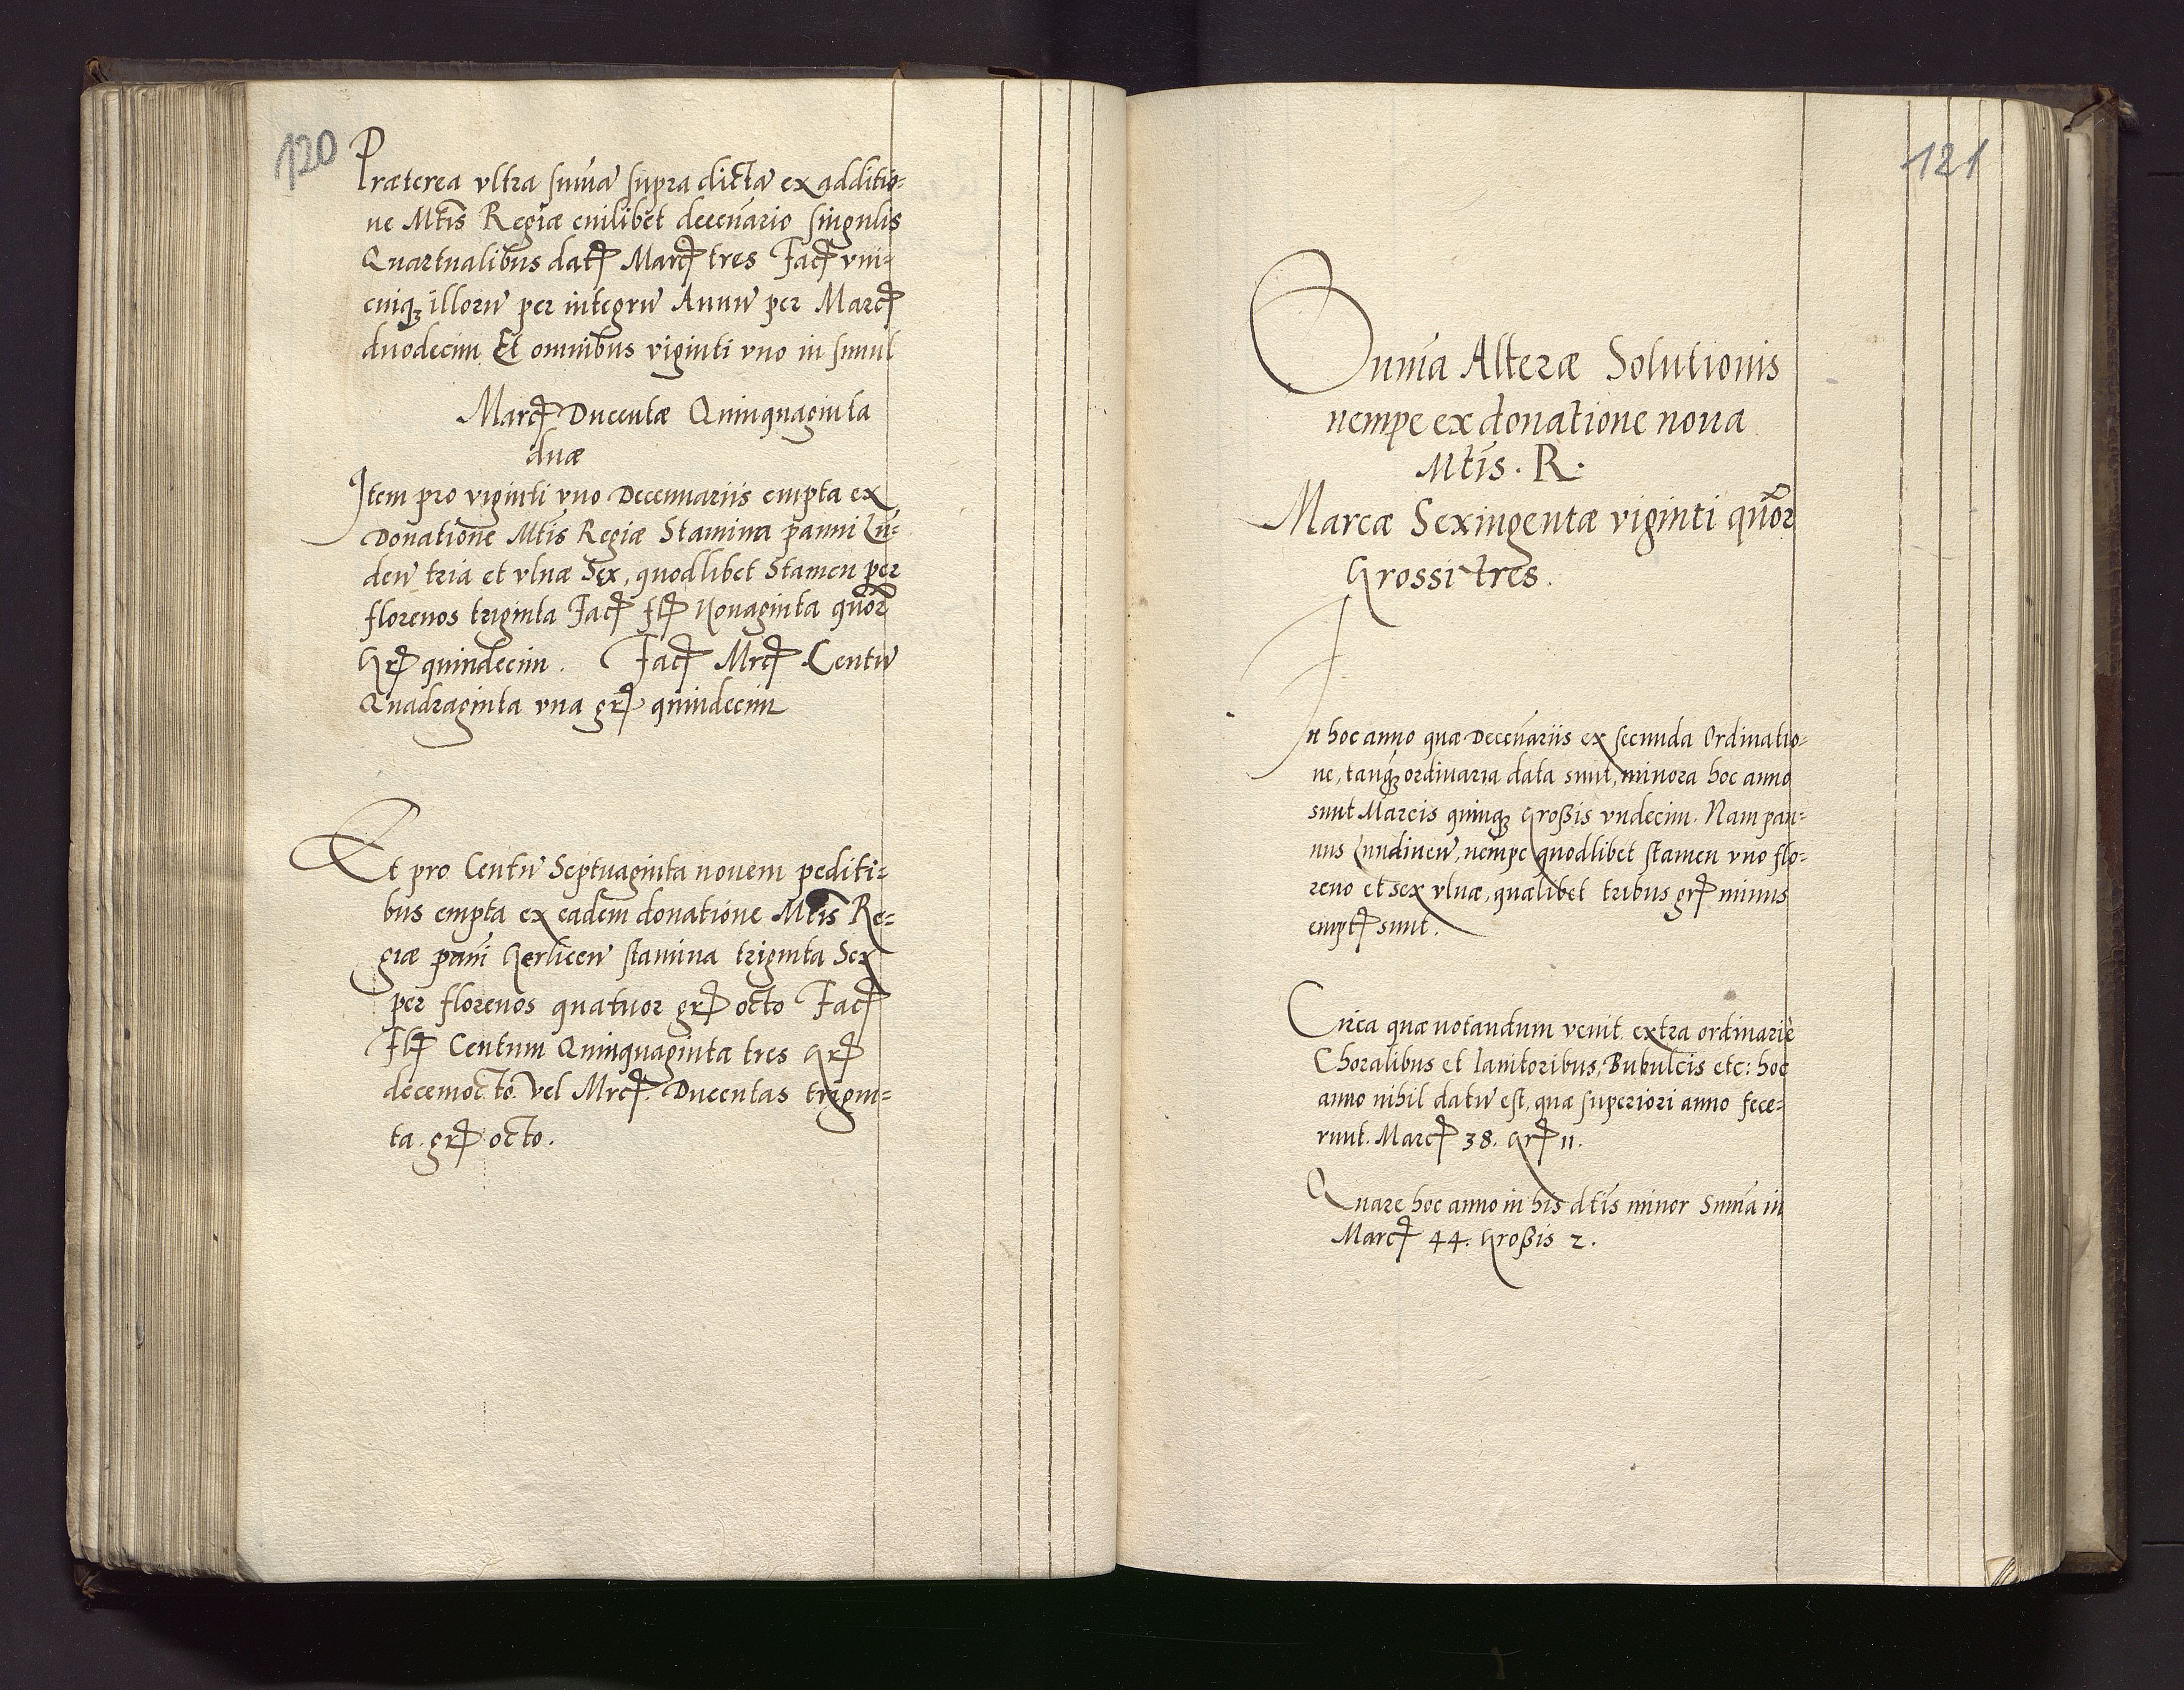 120
Præterea vltra sum̄ā supra dictā ex additio=
ne Mt̄is Regiæ cuilibet decen̄ario singulis
Quartualibus datꝭ Marcꝭ tres Facꝭ vni=
cuiqꝫ illorū per integrū Annū per Marcꝭ
duodecim Et omnibus viginti vno in simul
Marcꝭ Ducentæ Quinquaginta
duæ
Item pro viginti vno Decennariis empta ex
Donatione Mt̄is Regiæ Stamina panni Lū=
den̄ tria et vlnæ Sex, quodlibet Stamen per
florenos triginta Facꝭ flꝭ Nonaginta quōr
Grꝭ quindecim. Facꝭ Mrcꝭ Centū
Quadraginta vna grꝭ quindecim
Et pro Centū Septuaginta novem pediti=
bus empta ex eadem donatione Mt̄is Re=
giæ pan̄i Gerlicen̄ stamina triginta Sex
per florenos quatuor grꝭ octo Facꝭ
Flꝭ Centum Quinquaginta tres Grꝭ
decemocto. Vel Mrcꝭ. Ducentas trigin=
ta. grꝭ octo.
121
Sum̄a Alteræ Solutionis
nempe ex donatione noua
Mt̄is. R.
Marcæ Sexingentæ viginti quōr
Grossi tres.
In hoc anno quæ Decen̄ariis ex secunda Ordinatio=
ne, tanqꝫ ordinaria data sunt, minora hoc anno
sunt Marcis quinqꝫ Großis vndecim. Nam pan=
nus Lundinen̄, nempe quodlibet stamen vno flo=
reno et sex vlnæ, quælibet tribus grꝭ minus
emptꝭ sunt.
Circa quæ notandum venit extra ordinariè
Choralibus et Ianitoribus, Bubulcis etc: hoc
anno nihil datū est, quæ superiori anno fece=
runt. Marcꝭ 38. Grꝭ 11.
Quare hoc anno in his dt̄is minor Sum̄a in
Marcꝭ 44. Großis 2.